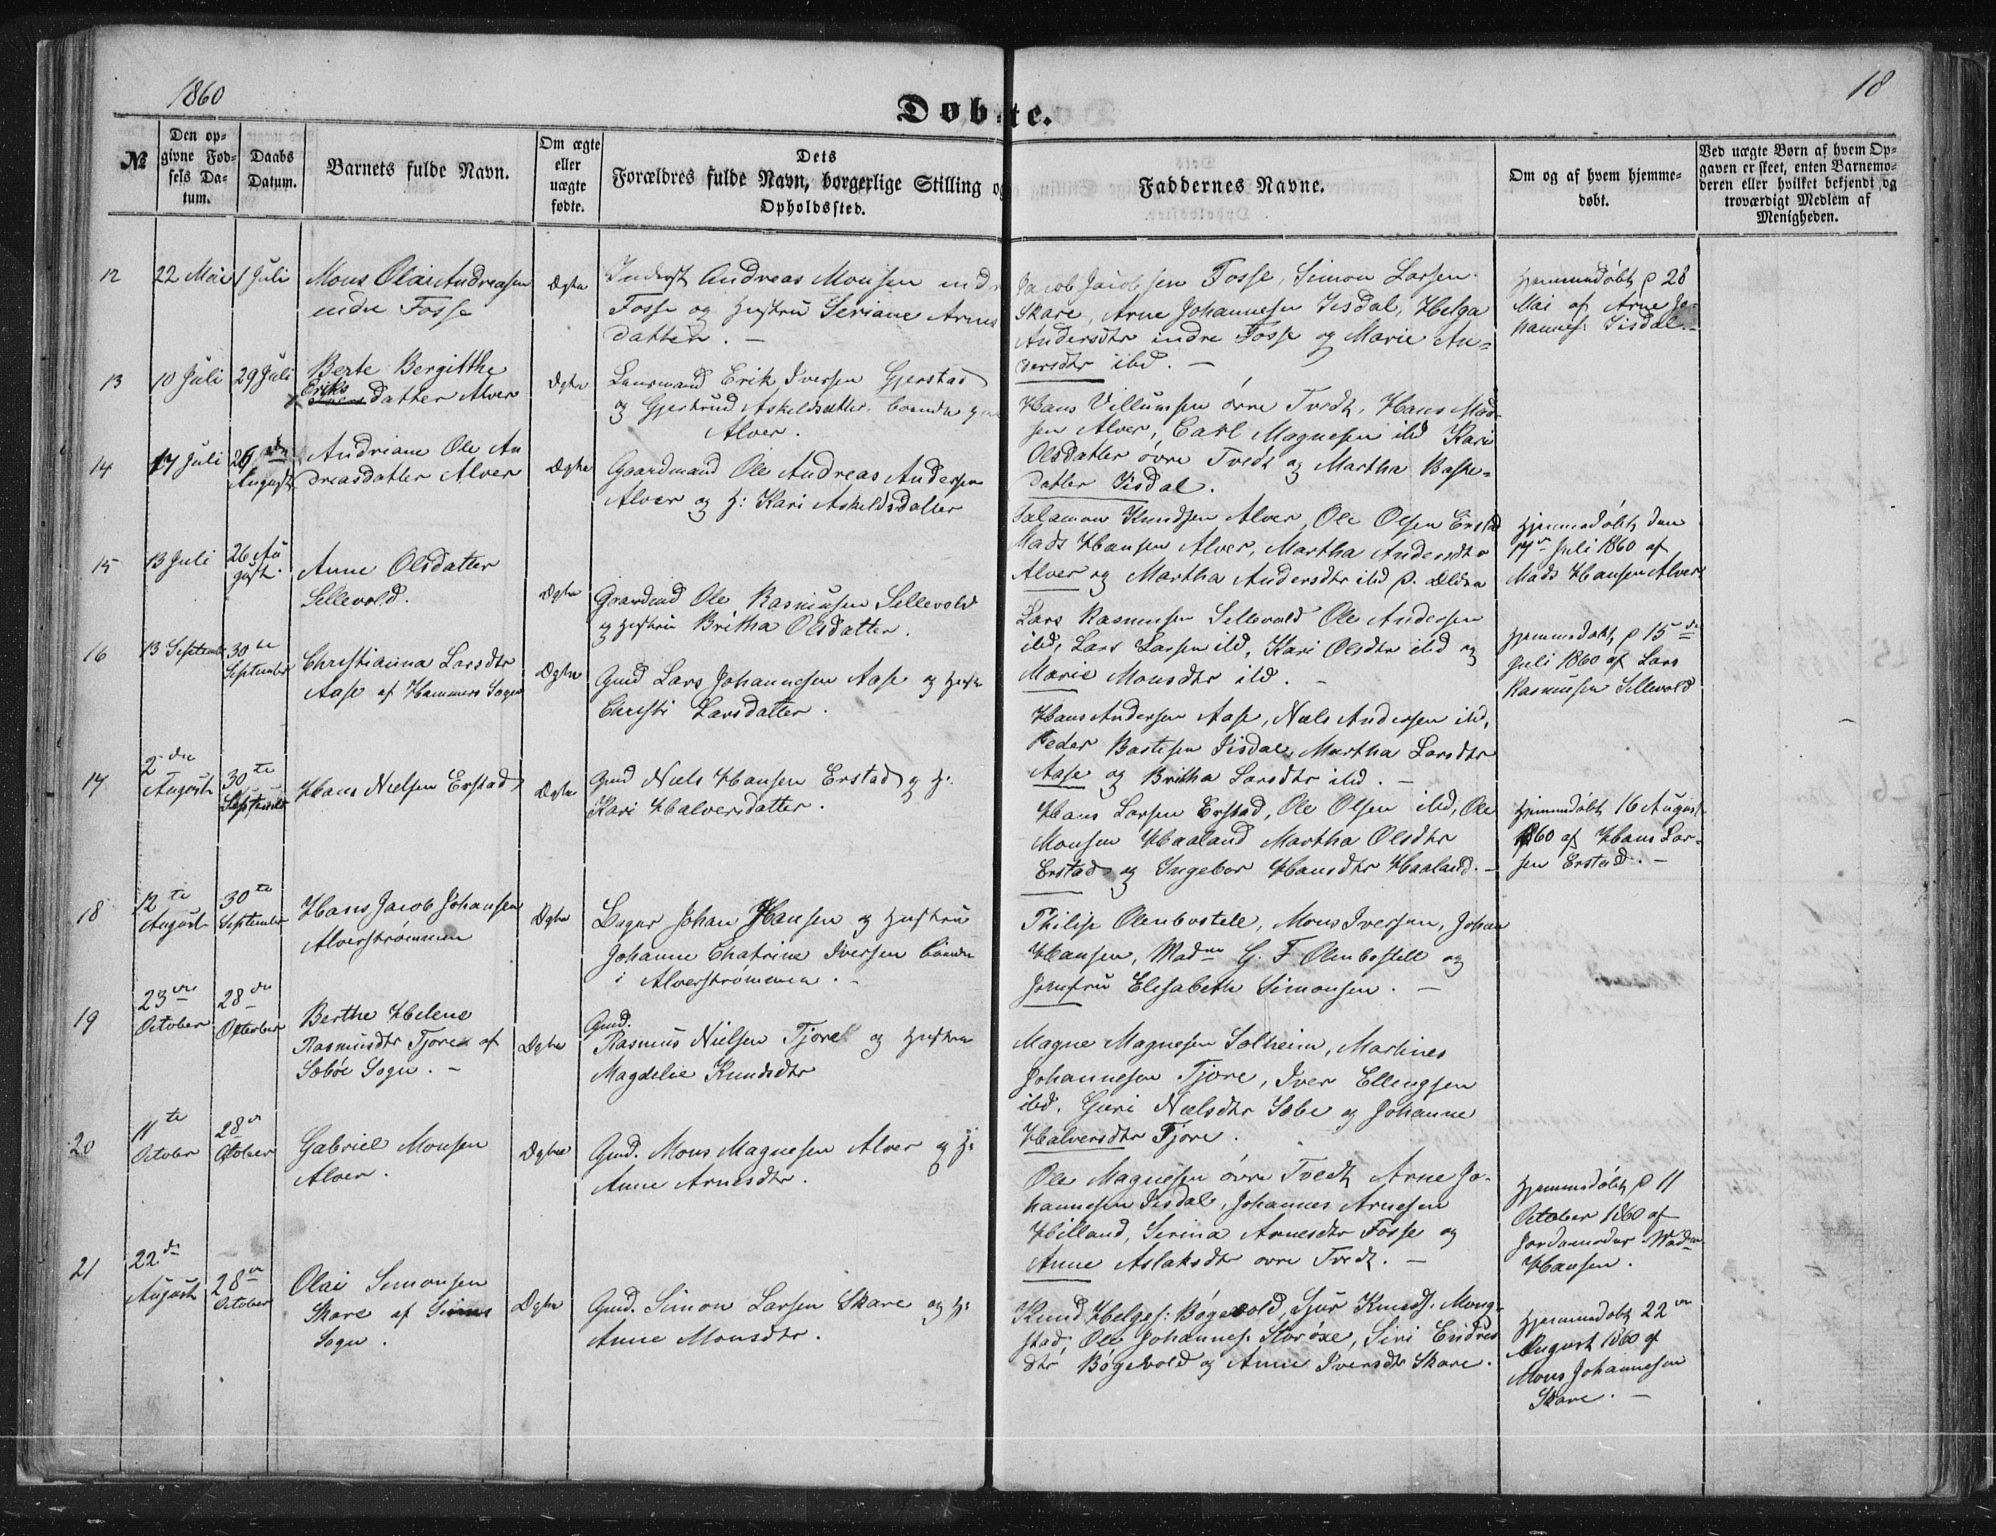 1860
18
Døbte.
№
Den op-
givne Fød-
sels Da-
tum.
Daabs
Datum.
Barnets fulde Navn.
Om ægte
eller
uægte
fødte.
Dets
Forældres fulde Navn, borgerlige Stilling og
Opholdssted.
Faddernes Navne.
Om og af hvem hjemme-
døbt.
Ved uægte Børn af hvem Op-
gaven er skeet, enten Barnemo-
deren eller hvilket bekjendt og
troværdigt Medlem af
Menigheden.
12
22 Mai
1 Juli
Mons Olai Andreasen
indre Fosse
Ægte
Inderst Andreas Monsen indr
Fosse og Hustru Seriane Arnes
datter. —
Jacob Jacobsen Fosse, Simon Larsen
Skare, Arne Johannesen Iisdal, Helga
Andersdtr indre Fosse og Marie An-
dersdtr ibd. —
Hjemmedøbt d 28
Mai af Arne Jo-
hannes: Iisdal. —
13
10 Juli
29 Juli
Berte Bergitthe
Eriks
datter Alver
Ægte
Lensmand Erik Iversen Gjerstad
og Gjertrud Askeldsdatter, boende
Alver.
Hans Villumsen övre Tvedt, Hans Mad-
sen Alver, Carl Magnesen ibd Kari
Olsdatter övre Tvedt og Martha Baste-
datter Iisdal.
14
17 Juli
26 de
August
Andriane Ole An
dreasdatter Alver
Ægte
Gaardmand Ole Andreas Andersen
Alver og H: Kari Askeldsdatter
Salamon Knudsen Alver, Ole Olsen Erstad
Mads Hansen Alver, Martha Andersdtr
Alver og Martha Andersdtr ibd d. Eldre
Hjemmedøbt den
Juli 1860 af
Mads Hansen Alver
15
13 Juli
26 Au
gust.
Anne Olsdatter
Sellevold.
Ægte
Gaardmd Ole Rasmusen Sellevold
og Hustru Britha Olsdatter.
Lars Rasmusen Sellevold Ole Andersen
ibd, Lars Larsen ibd, Kari Olsdtr ibd og
Marie Monsdtr ibd. —
Hjemmedøbt d 15 de
Juli 1860 af Lars
Rasmusen Sellevold
16
13 September
30 te
September
Christianna Larsdtr
Aase af Hammers Sogn
Ægte
Gmd Lars Johannesen Aase og Hustr
Christi Larsdatter.
Hans Andersen Aase, Niels Andersen ibd,
Peder Bastesen Iisdal, Martha Larsdtr
Aase og Britha Larsdtr ibd. —
17
2 den
August
30 te
September
Hans Nielsen Erstad
Ægte
Gmd Niels Hansen Erstad og H:
Kari Halversdatter.
Hans Larsen Erstad, Ole Olsen ibd, Ole
Monsen Haaland Martha Olsdtr
Erstad og Ingebor Hansdtr Haaland. —
Hjemmedøbt 16 August
1860 af Hans Lar-
sen Erstad. —
18
12 te
August
30 te
September
Hans Jacob Johansen
Alverstrømmen
Ægte
Johan Hansen og Hustru
Johanne Chatrine Iversen boende
i Alverstrømmen. —
Philip Olenbostell, Mons Iversen, Johan
Hansen, Madm G. F Olenbostell og
Jomfru Elisabeth Simonsen. —
19
23 de
October
28 de
October
Berthe Helene
Rasmusdtr Tjore af
Sæbøe Sogn. —
Ægte
Gmd.
Rasmus Nielsen Tjore og Hustru
Magdelie Knudsdtr
Magne Magnesen Solheim, Martines
Johannesen Tjore, Iver Ellingsen
ibd. Guri Nielsdtr Sæbe og Johanne
Halversdtr Tjore.
20
11 te
October
28 de
October
Gabriel Monsen
Alver.
Ægte
Gmd. Mons Magnesen Alver og H:
Anne Arnesdtr.
Ole Magnesen övre Tvedt, Arne Jo-
hannesen Iisdal, Johannes Arnesen
Hilland, Serina Arnesdtr Fosse og
Anne Aslaksdtr övre Tvedt. —
Hjemmedøbt d 11
October 1860 af
Jordamoder Madm
Hansen.
21
22 de
August
28 de
October
Olai Simonsen
Skare af
Sogn.
Ægte
Gmd. Simon Larsen Skare og H:
Anne Monsdtr.
Knud Helges: Bøgevold, Sjur Knuds. Mong-
stad, Ole Johannes: Storöxe, Siri Endres
dtr Bøgevold og Anne Iversdtr Skare.
Hjemmedøbt 22 de
August 1860 af
Mons Johannesen
Skare. —